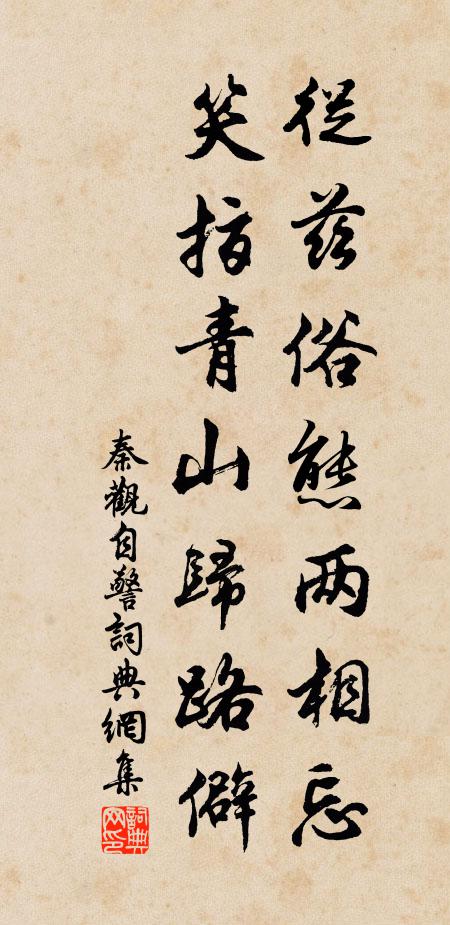 從茲俗態兩相忘
笑指青山歸路僻
秦觀自警詞典網集
詞典網印